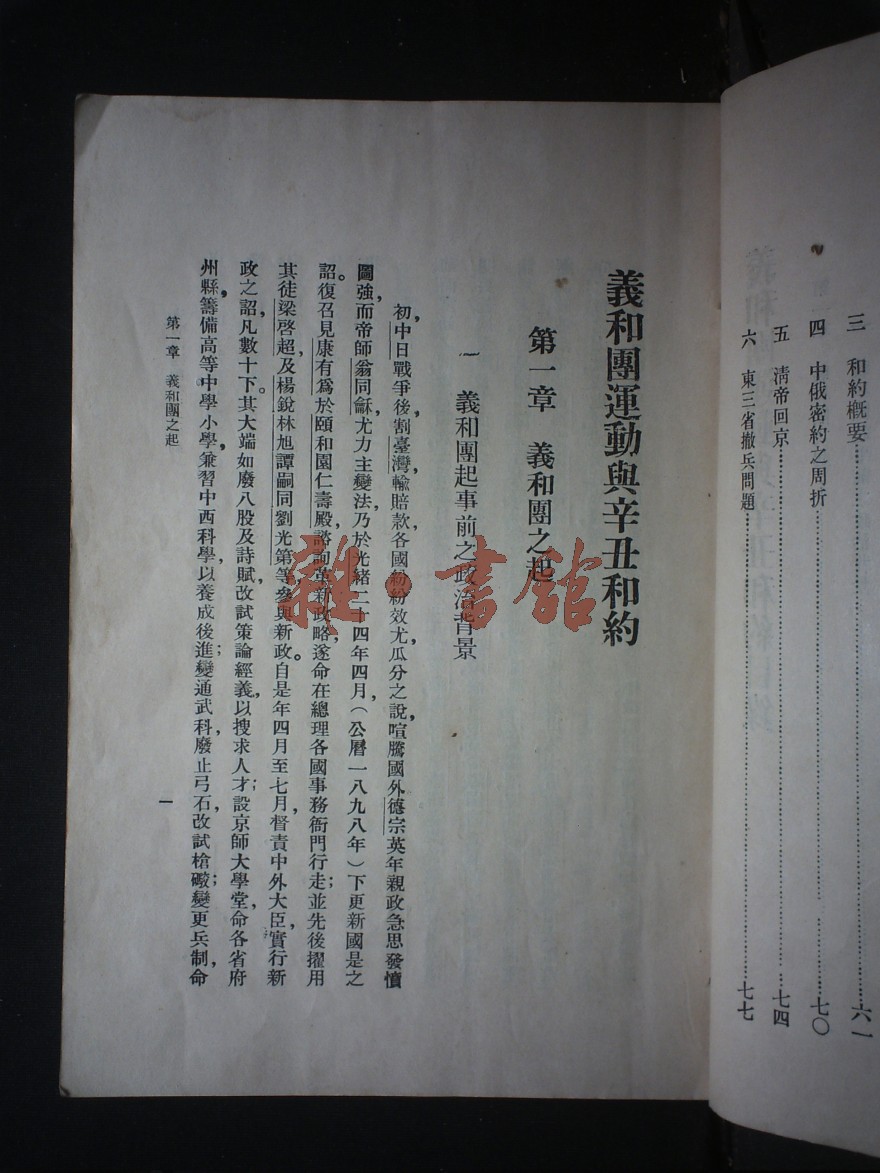 三 和約概要……六一
四 中俄密約之周折……七〇
五 清帝回京……七四
六 東三省撤兵問題……七七
義和團運動與辛丑和約
第一章 義和團之起
一 義和團起事前之政治背景
初，中日戰爭後，割臺灣，輸賠款，各國紛紛效尤，瓜分之說，喧騰國外。德宗英年親政，急思發憤
圖強，而帝師翁同龢，尤力主變法，乃於光緒二十四年四月，（公曆一八九八年）下更新國是之
詔。復召見康有爲於頤和園仁壽殿，諮詢革新政略，遂命在總理各國事務衙門行走；並先後擢用
其徒梁啓超，及楊銳林旭譚嗣同劉光第等，參與新政。自是年四月至七月，督責中外大臣，實行新
政之詔，凡數十下。其大端如廢八股及詩賦，改試策論經義，以搜求人才；設京師大學堂，命各省府
州縣，籌備高等中學小學，兼習中西科學，以養成後進；變通武科，廢止弓石，改試槍礮；變更兵制，命
第一章 義和團之起
一
雜·書館